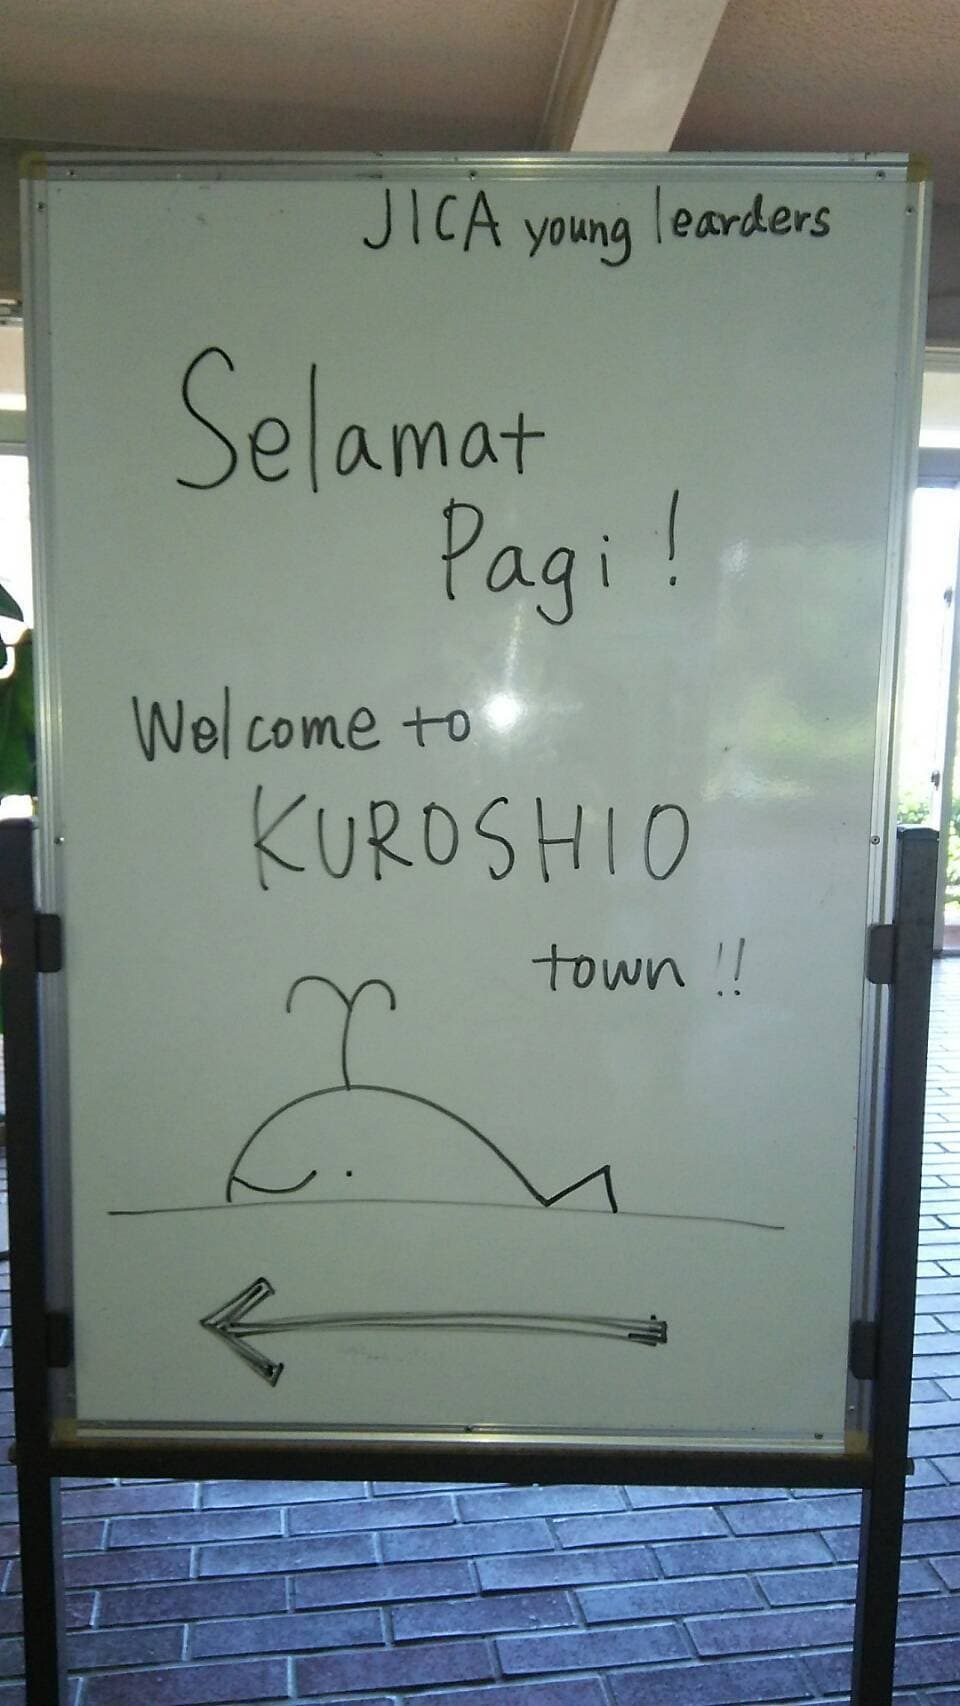 JICA young learders
Selamat
Pagi !
Welcome to
KUROSHIO
town !!